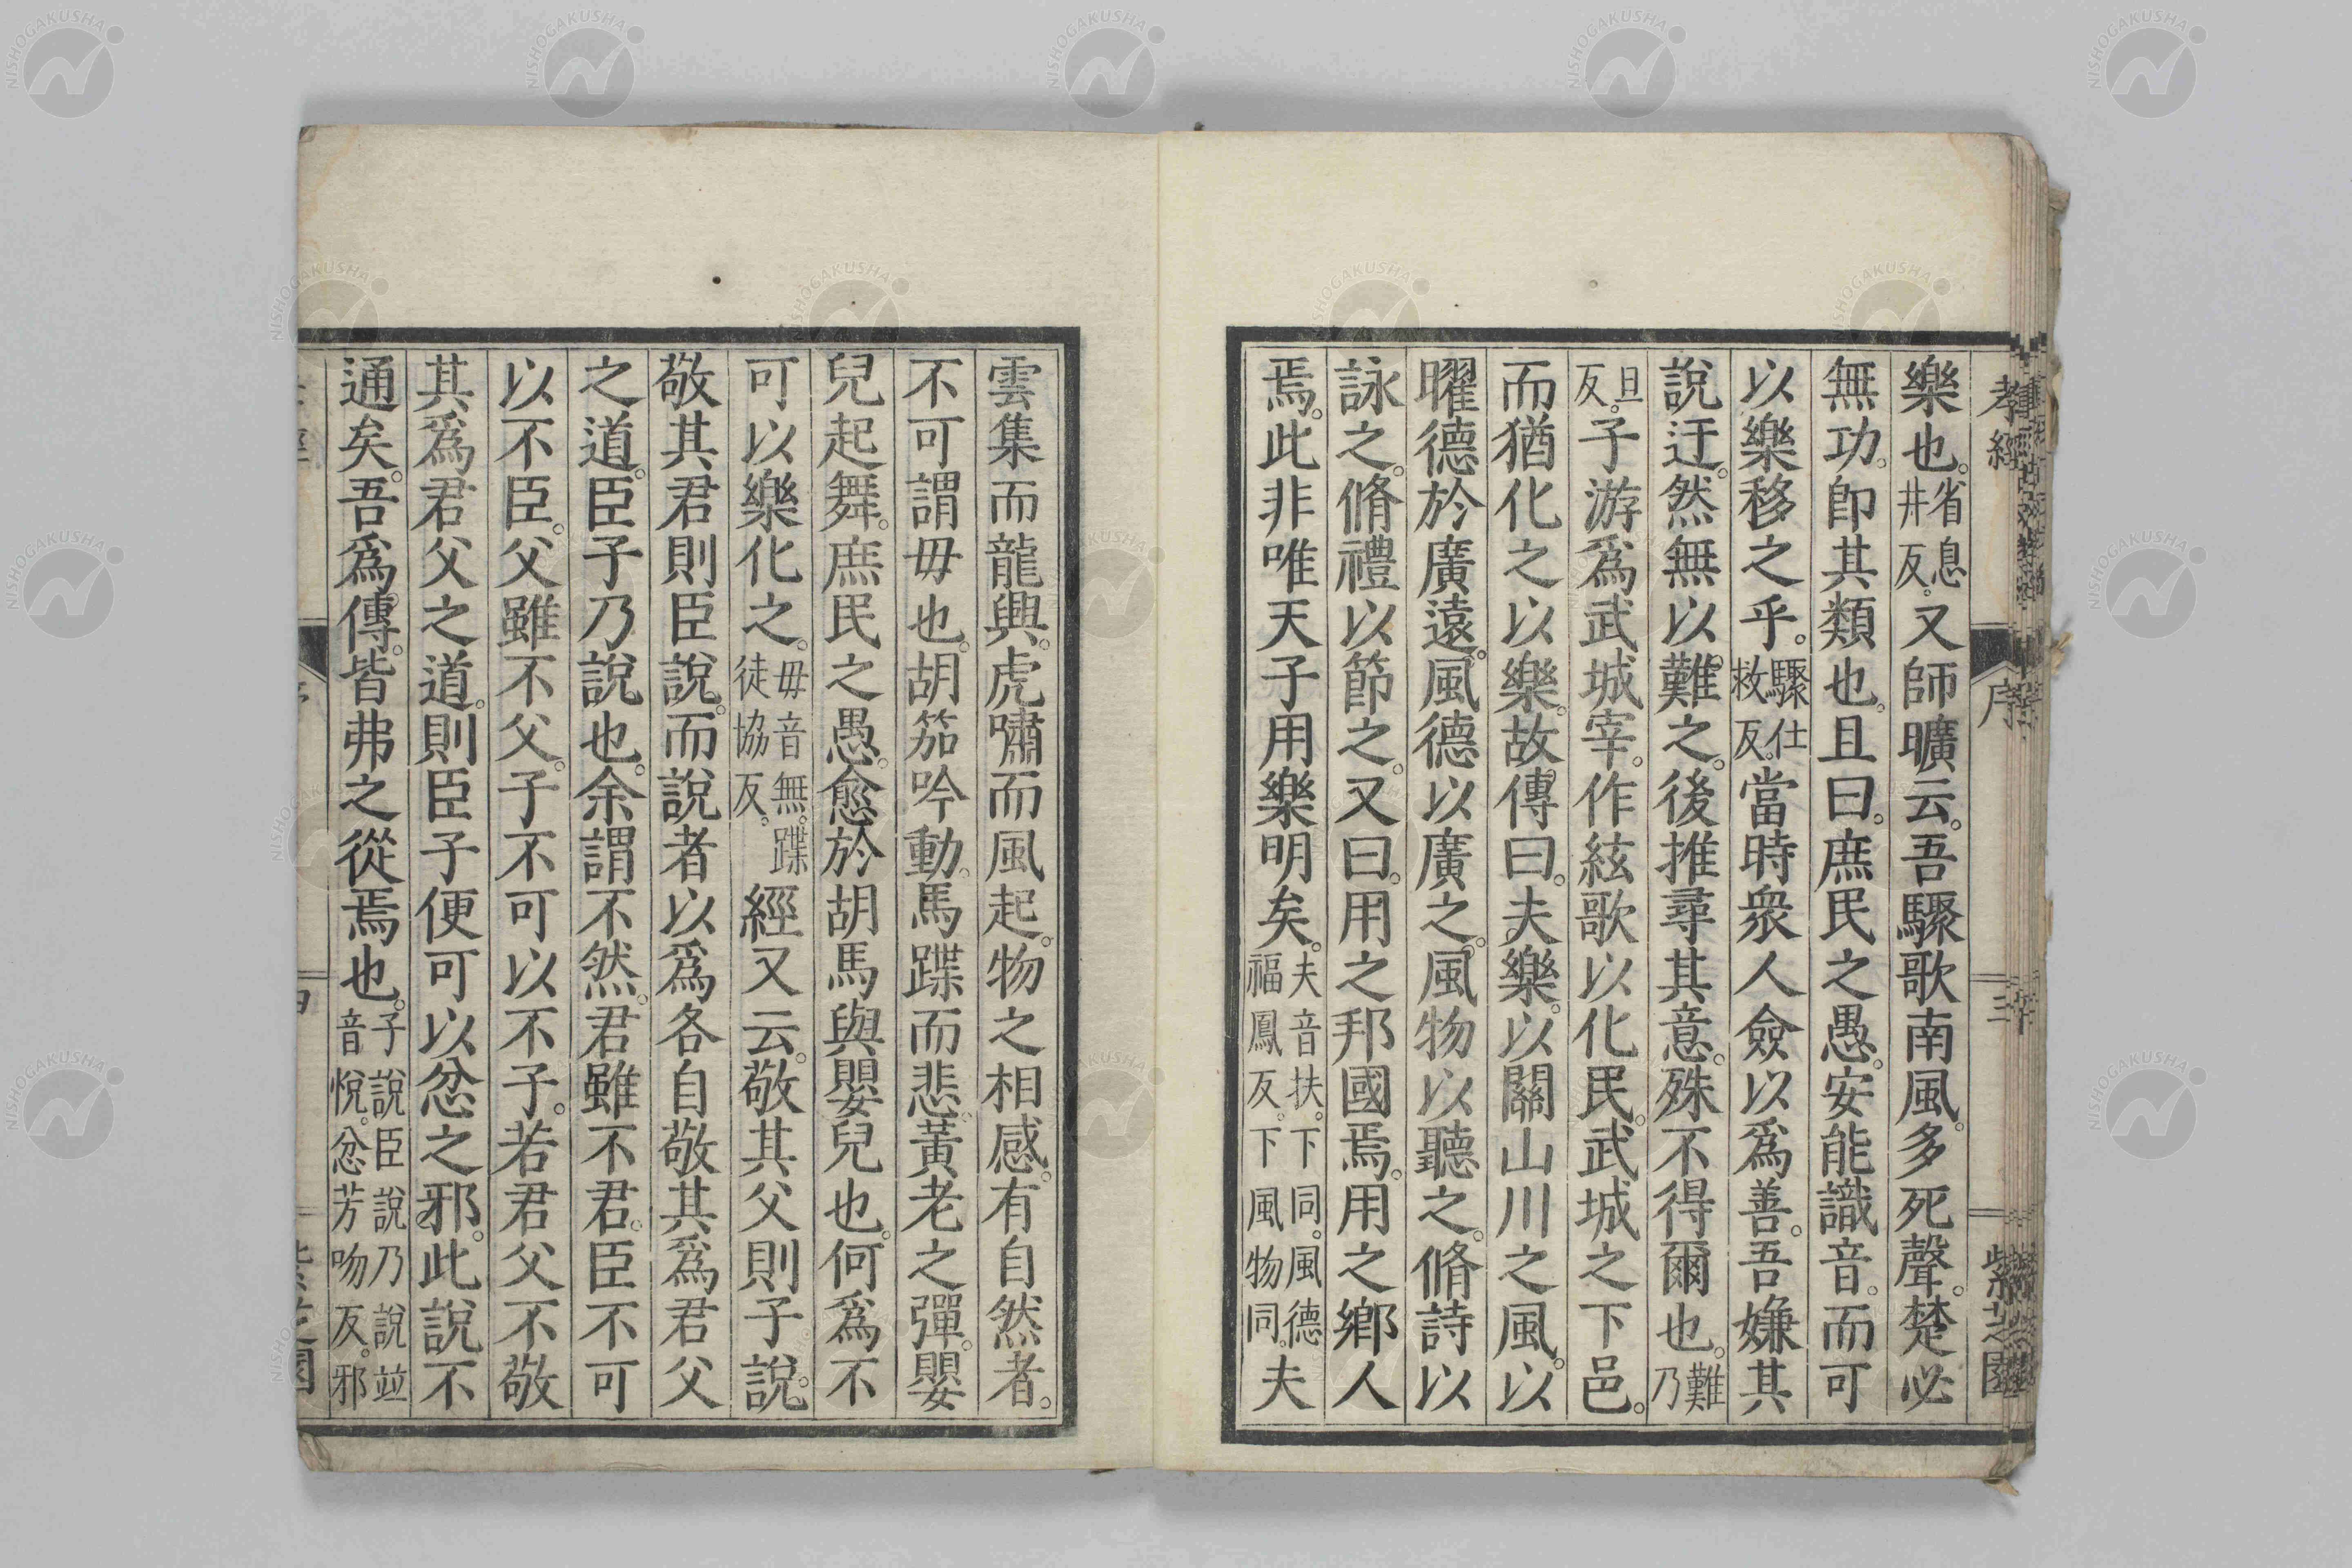 孝經
序
三
紫芝園
樂也。省息井反。又師曠云。吾驟歌南風。多死聲。楚必
無功。卽其類也。且曰。庶民之愚。安能識音。而可
以樂移之乎。驟仕救反。當時衆人僉以爲善。吾嫌其
說迂。然無以難之。後推尋其意。殊不得爾也。難乃
旦反。子游爲武城宰。作絃歌以化民。武城之下邑。
而猶化之以樂。故傳曰。夫樂。以關山川之風。以
曜德於廣遠。風德以廣之。風物以聽之。脩詩以
詠之。脩禮以節之。又曰。用之邦國焉。用之鄉人
焉。此非唯天子用樂明矣。夫音扶。下同。風德福鳳反。下風物同。夫
雲集而龍興。虎嘯而風起。物之相感。有自然者。
不可謂毋也。胡笳吟動。馬蹀而悲。黃老之彈。嬰
兒起舞。庶民之愚。愈於胡馬與嬰兒也。何爲不
可以樂化之。毋音無。蹀徒協反。經又云。敬其父則子說。
敬其君則臣說。而說者以爲各自敬其爲君父
之道。臣子乃說也。余謂不然。君雖不君。臣不可
以不臣。父雖不父。子不可以不子。若君父不敬
其爲君父之道。則臣子便可以忿之邪。此說不
通矣。吾爲傳。皆弗之從焉也。子說臣說乃說竝音悅。忿芳吻反。邪
NISHOGAKUSHA